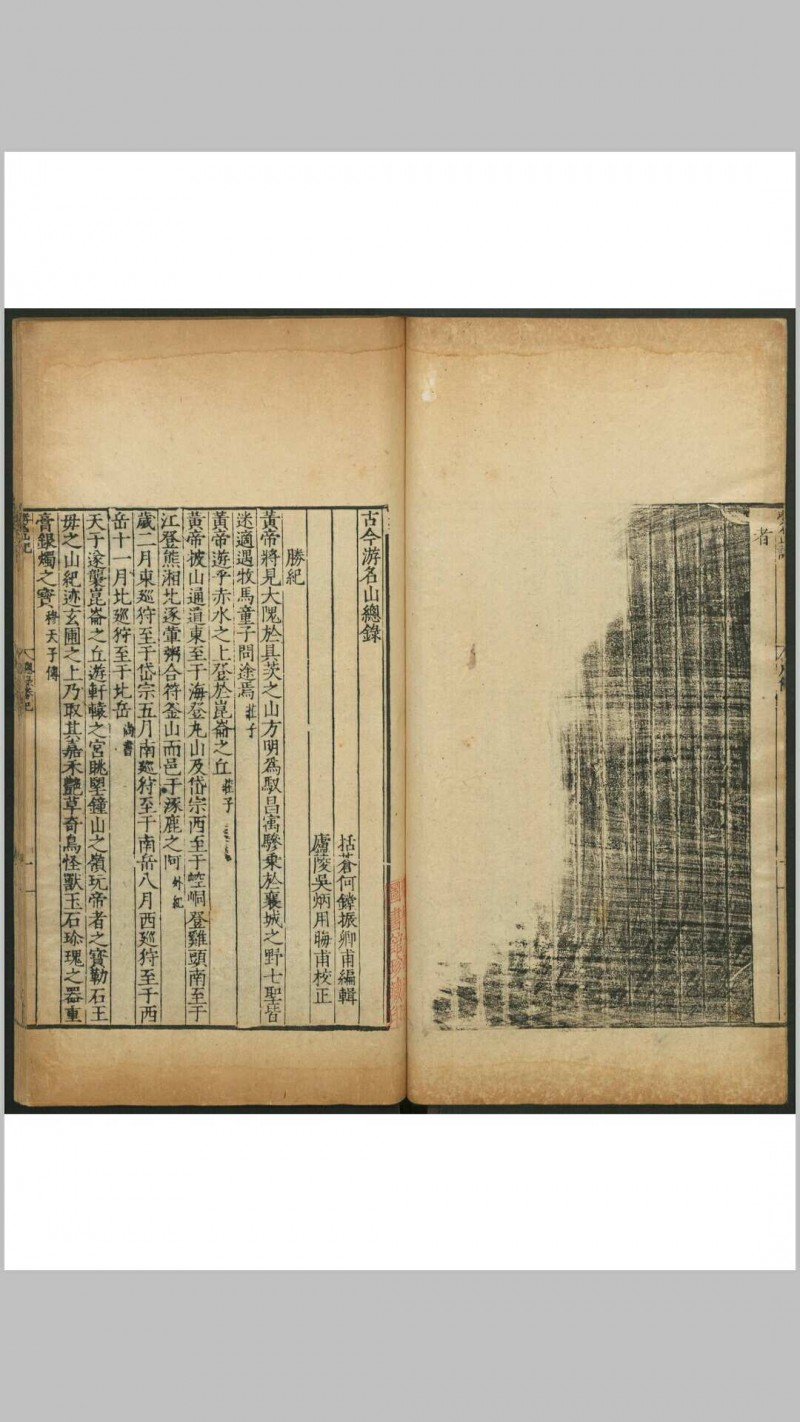 者
古今游名山總錄
括蒼何鏜振卿甫編輯
廬陵吳炳用晦甫校正
勝紀
黃帝將見大隗於具茨之山方明爲馭昌寓驂乘於襄城之野七聖皆
迷適遇牧馬童子問途焉 莊子
黃帝遊乎赤水之上登於崑崙之丘 莊子
黃帝披山通道東至于海登丸山及岱宗西至于崆峒登雞頭南至于
江登熊湘北逐葷粥合符釜山而邑于涿鹿之阿 外紀
歲二月東廵狩至于岱宗五月南廵狩至于南岳八月西廵狩至于西
岳十一月北廵狩至于北岳 尚書
天子遂襲崑崙之丘遊軒轅之宮眺望鐘山之嶺玩帝者之寶勒石王
毋之山紀迹玄圃之上乃取其嘉禾艷草奇鳥怪獸玉石珍瑰之器重
膏銀燭之寶 穆天子傳